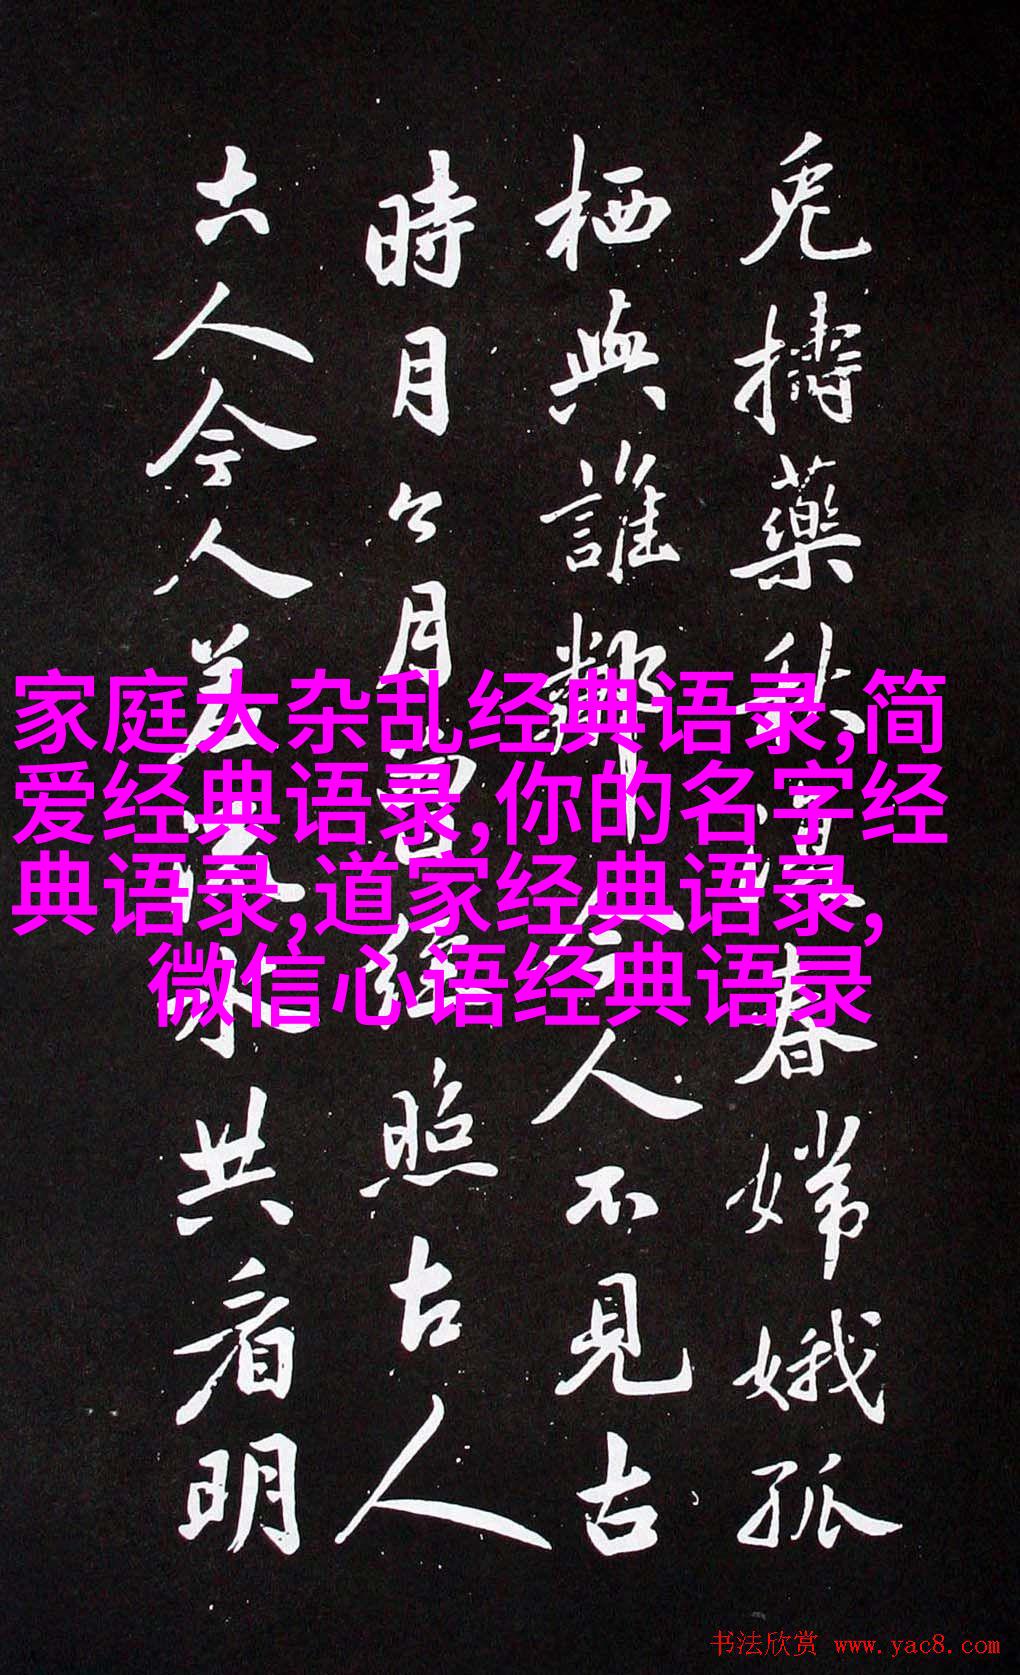 兔擣藥秋復春嫦娥孤
栖與誰鄰今人不見古
時月今月曾經照古人
古人今人若流水共看明
家庭大杂乱经典语录,简
爱经典语录,你的名字经
典语录,道家经典语录,
微信心语经典语录
书法欣赏 www.yac8.com